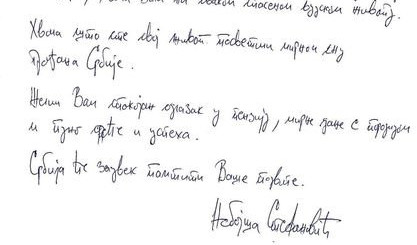 Вам на сваком спасеном људском животу.
Хвала што сте свој живот посветили мирном сну
грађана Србије.
Желим Вам спокојан одлазак у пензију, мирне дане с породицом
и пуно среће и успеха.
Србија ће заувек памтити Ваше подвиге.
Небојша Стефановић